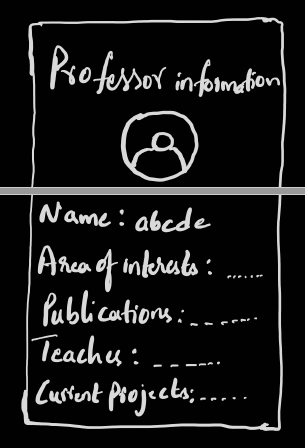 Professor information
Name: abcde
Area of interests: ......
Publications: - - - - - -
Teaches: - - - - -
Current Projects: - - - - -